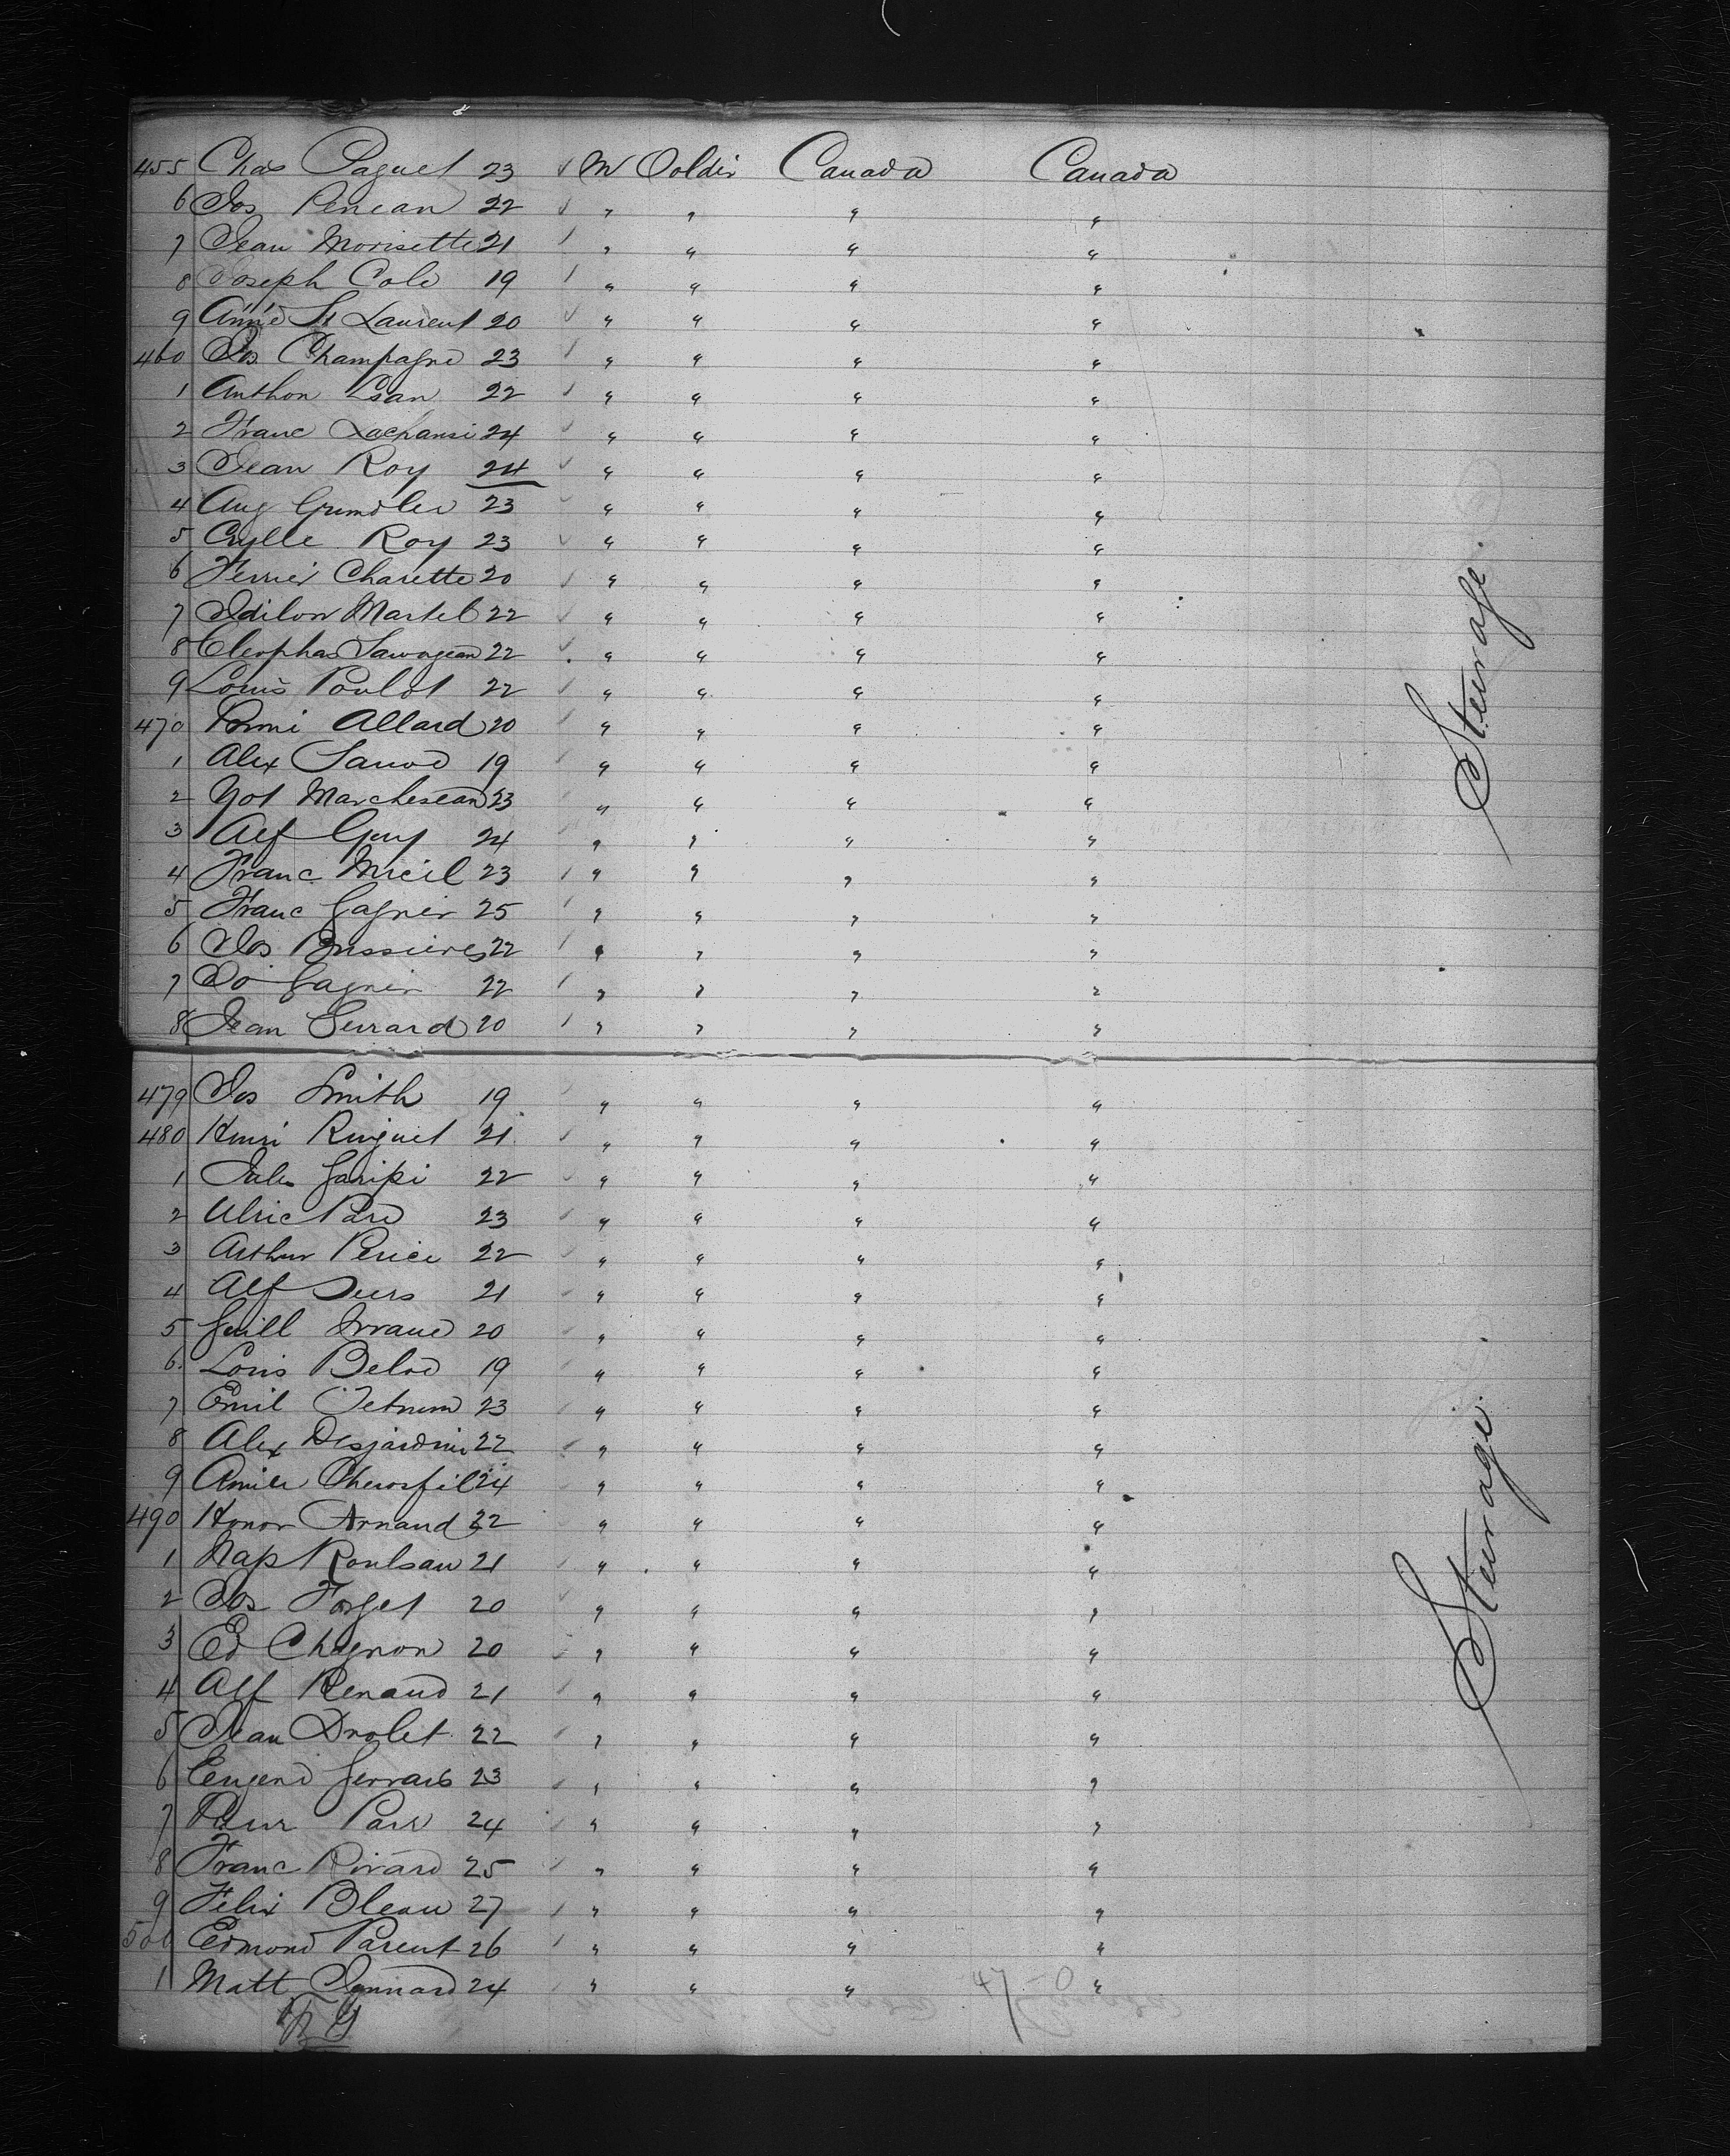 455 Chas Paquet 23 ✓ M Soldir Canada Canada
6 Jos Penean 22 ✓ " " " "
7 Jean Morisette 21 " " " "
8 Joseph Cole 19 " " " "
9 St Laurent 20 ✓ " " " "
460 Jos Champagne 23 " " " "
1 Anthon 22 " " " "
2 Franc Lachansi 24 ✓ " " " "
3 Jean Roy 24 ✓ " " " "
4 Aug Grundler 23 ✓ " " " "
5 Cylle Roy 23 ✓ " " " "
6 Ferrier Charette 20 ✓ " " " "
7 Odilon Martel 22 ✓ " " " "
8 Cleophas Sauvagean 22 ✓ " " " "
9 Louis Poulot 22 ✓ " " " "
470 Allard 20 " " " "
1 Alex 19 " " " "
2 Marchesean 23 " " " "
3 Alf Guy 24 " " " "
4 Franc Mieil 23 " " " "
5 Franc Gagnier 25 " " " "
6 Jos Bussieres 22 " " " "
7 Do Gagnier 22 " " " "
8 Jean Gerrard 20 " " " "
Steerage
479 Jos Smith 19 " " " "
480 Henri Ringuet 21 ✓ " " " "
1 Jules Garipi 22 ✓ " " " "
2 Ulric Pare 23 ✓ " " " "
3 Arthur 22 ✓ " " " "
4 Alf 21 ✓ " " " "
5 Guill 20 " " " "
6 Louis 19 " " " "
7 Emil 23 ✓ " " " "
8 Alex Desjardins 22 ✓ " " " "
9 24 " " " "
490 Honor Arnaud 22 " " " "
1 Nap Roulsau 21 " " " "
2 Jos Forget 20 ✓ " " " "
3 Ed Chagnon 20 ✓ " " " "
4 Alf Renaud 21 ✓ " " " "
5 Jean Drolet 22 " " " "
6 Eugene Gervais 23 ✓ " " " "
7 24 " " " "
8 Franc Rivard 25 ✓ " " " "
9 Felix Bleau 27 " " " "
500 Edmond Parent 26 " " " "
1 Matt 24 " " " "
47-0
Steerage